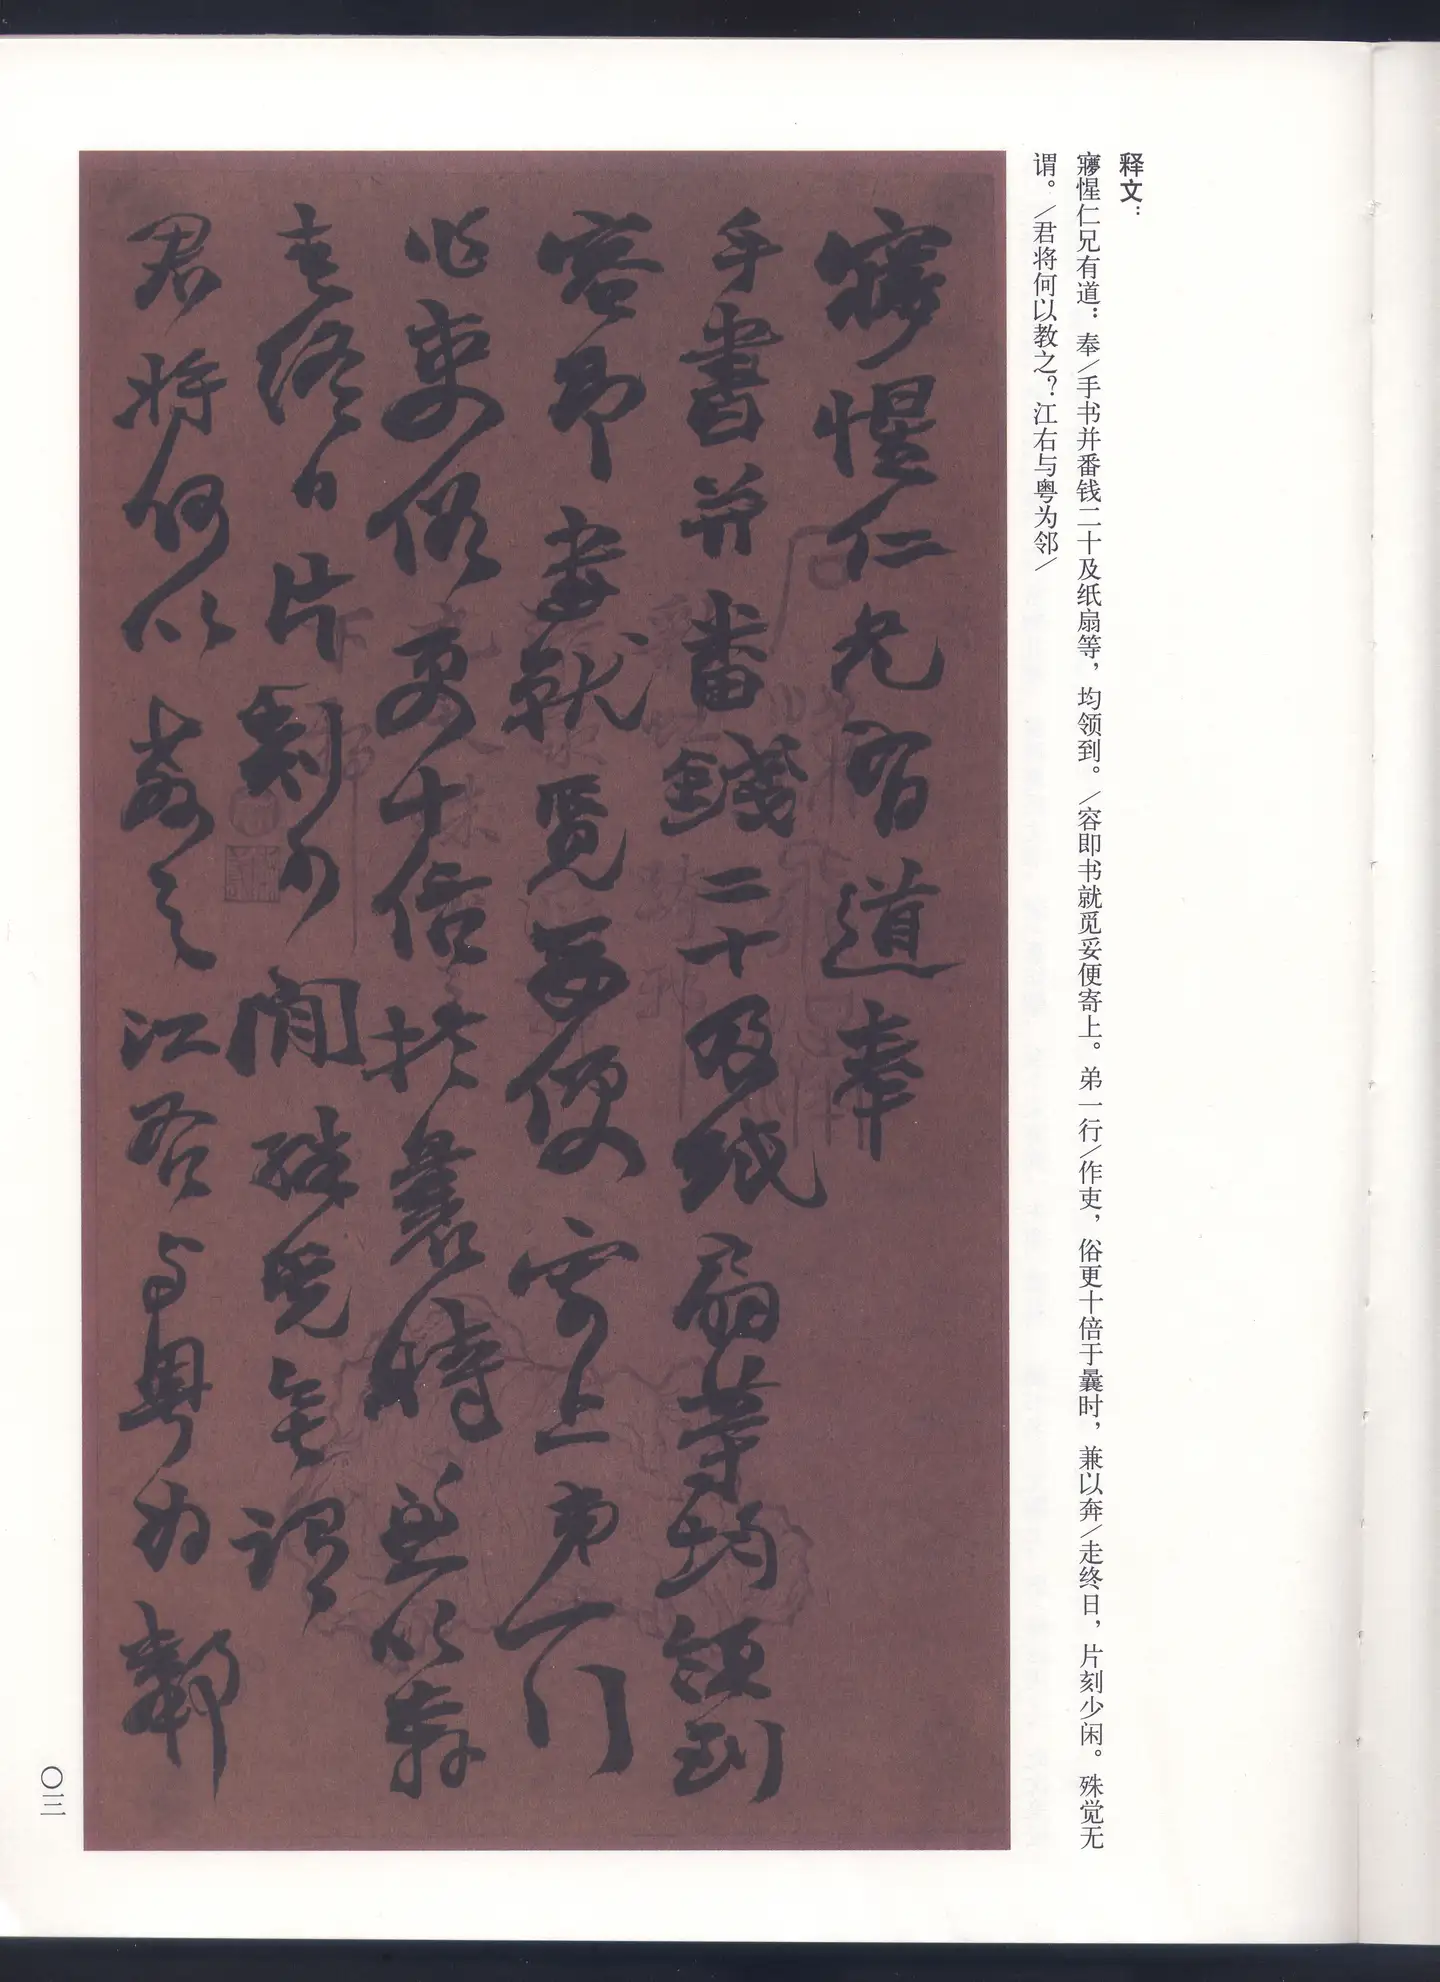 释文：
寱惺仁兄有道：奉／手书并番钱二十及纸扇等，均领到。／容即书就觅妥便寄上。弟一行／作吏，俗更十倍于曩时，兼以奔／走终日，片刻少闲。殊觉无
谓。／君将何以教之？江右与粤为邻／
惺仁兄有道奉
手書并番錢二十及紙扇等均領到
容即書就覓妥便寄上弟一行
作吏俗更十倍於曩時兼以奔
走終日片刻少閒殊覺無謂
君將何以教之江右与粤为鄰
〇一三